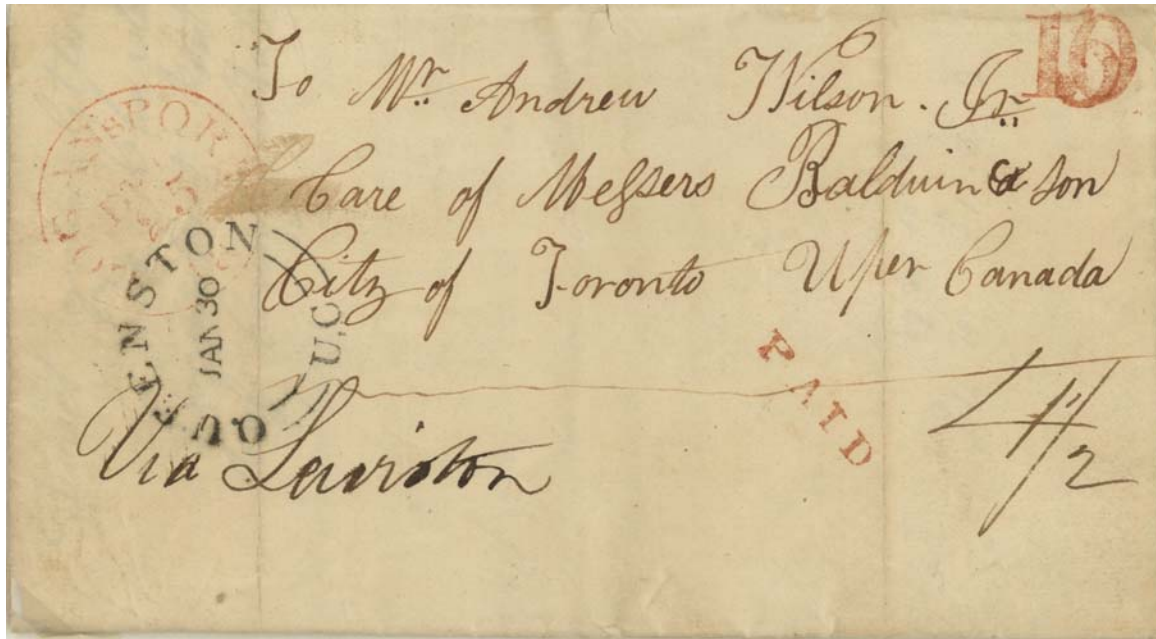 To Mr. Andrew Wilson. Jr.
Care of Meſsers Balduin & Son
City of Toronto Uper Canada
QUEENSTON U.C
JAN 30
PAID
4 1/2
Via Lewiston